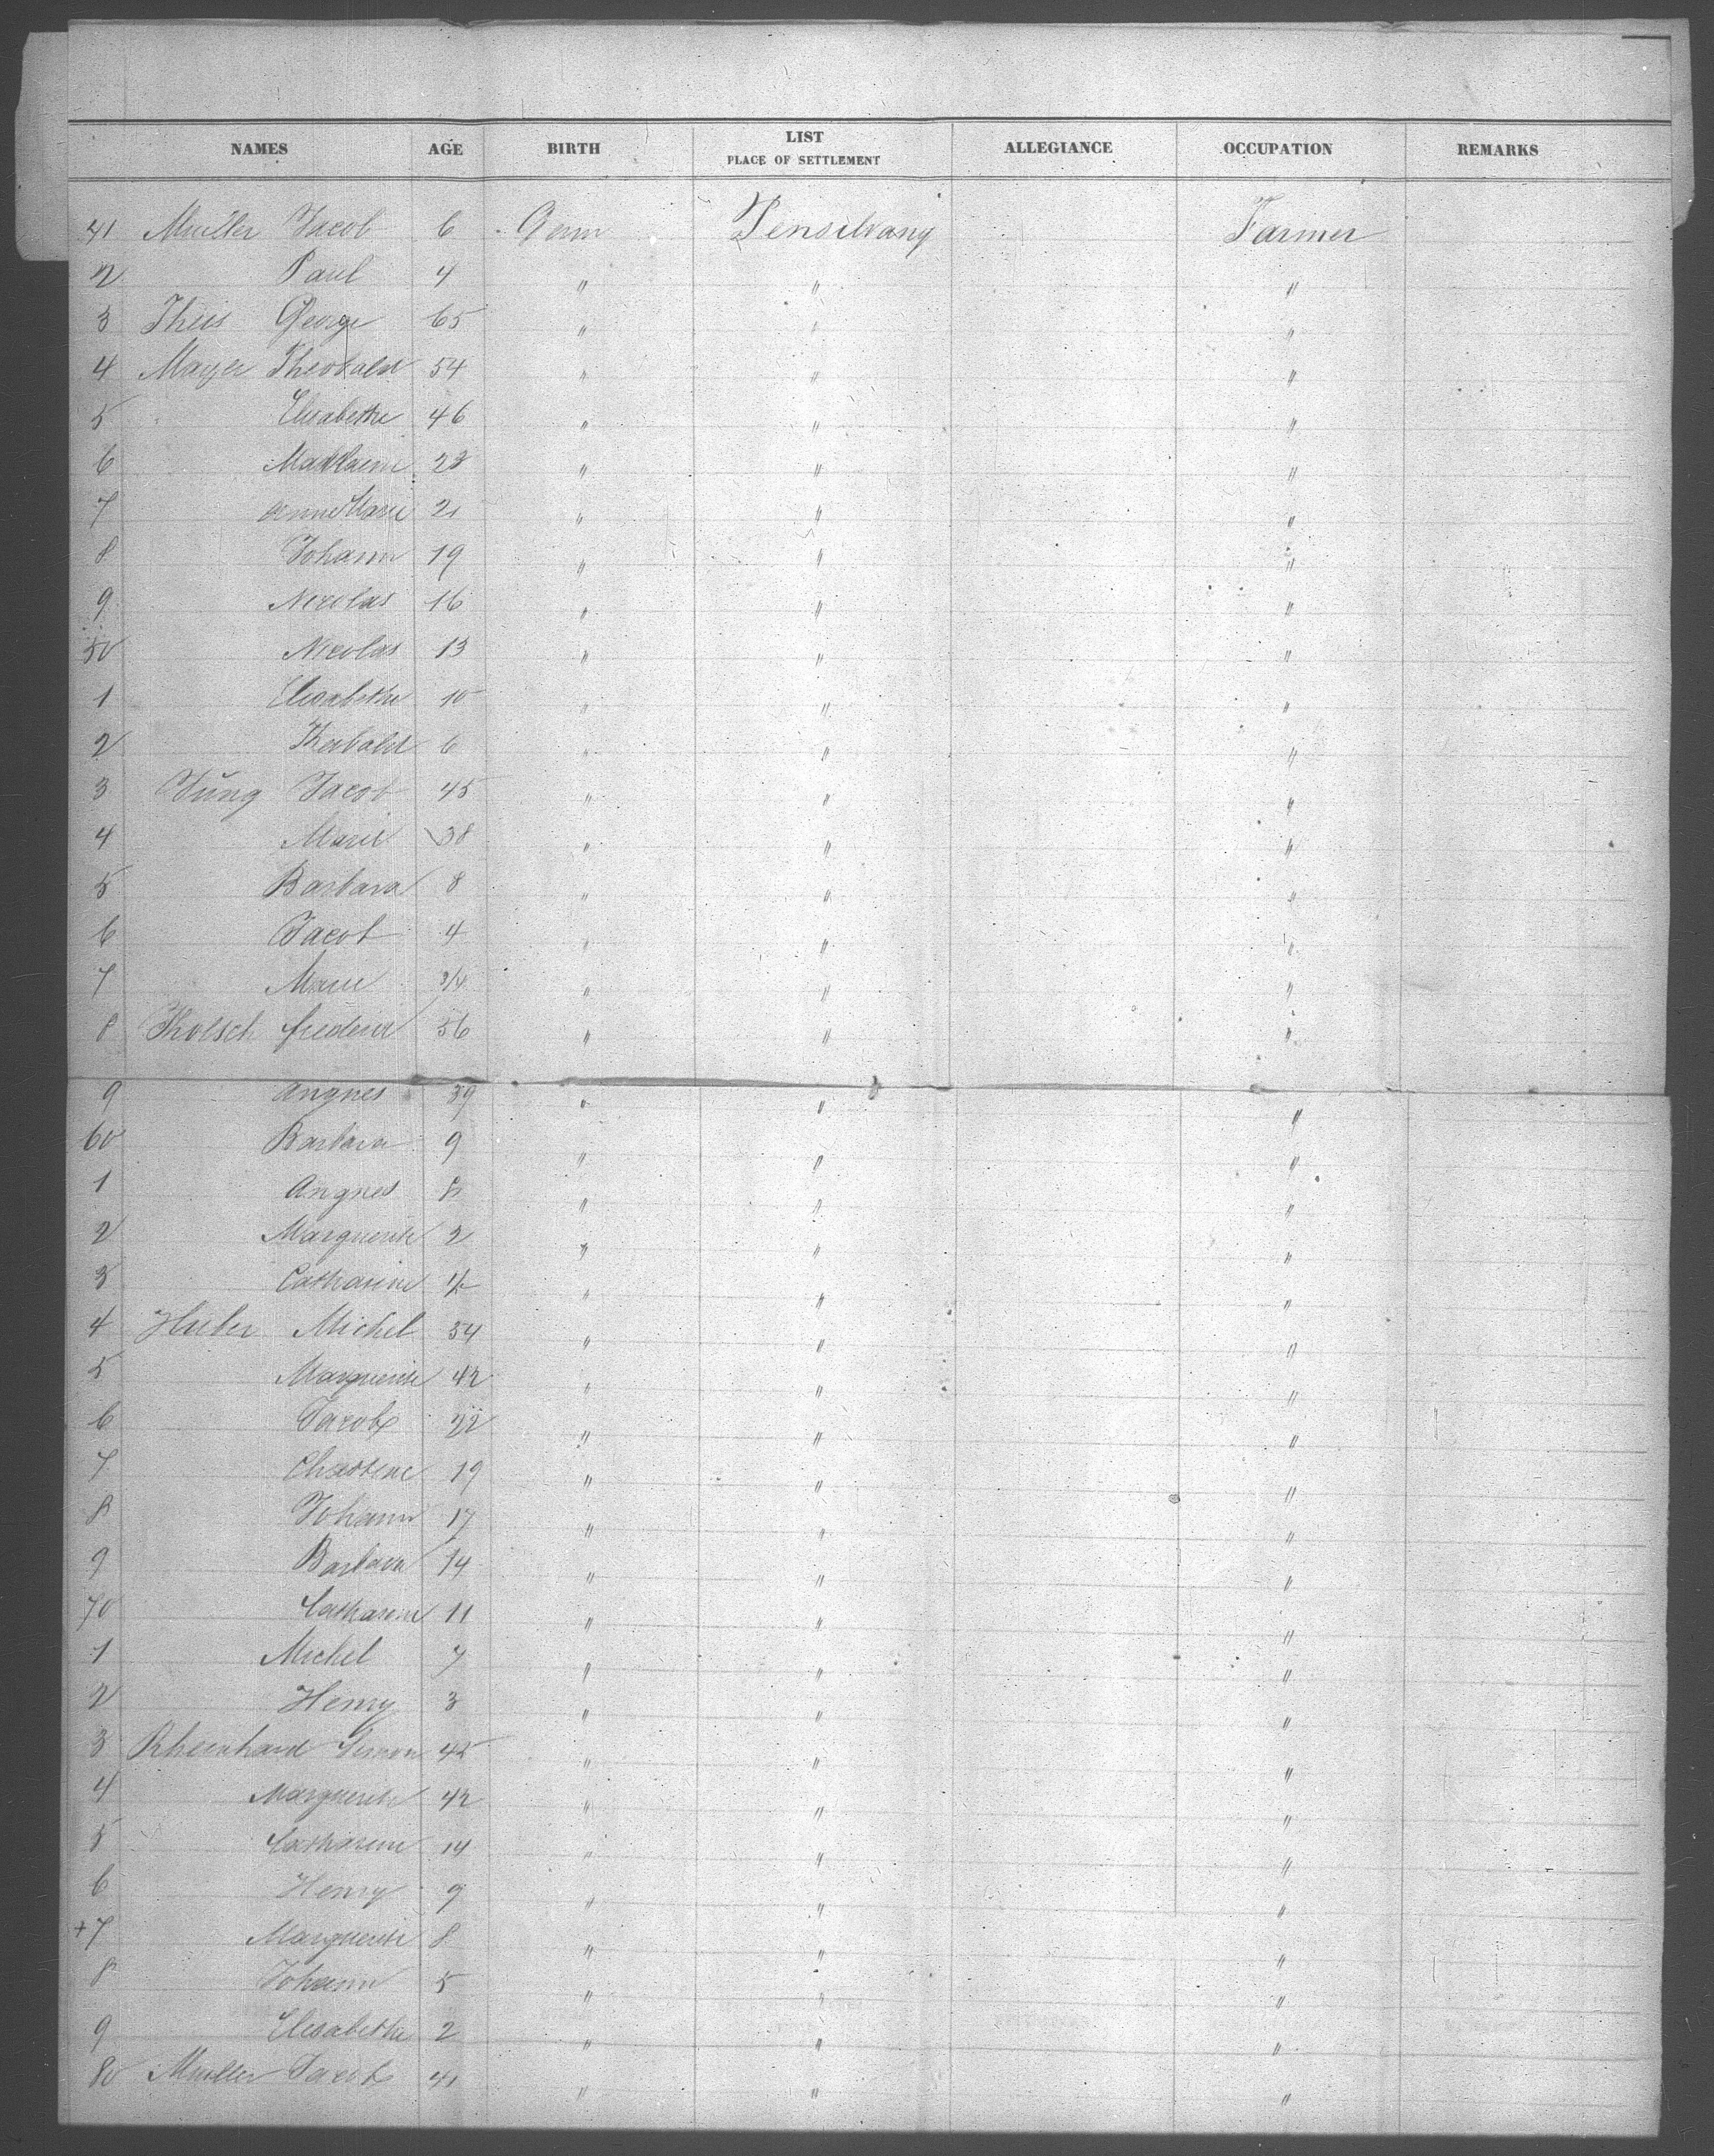 NAMES AGE BIRTH LIST PLACE OF SETTLEMENT ALLEGIANCE OCCUPATION REMARKS
41 Muller Jacob 6 Germ Pensilvany Farmer
2 Paul 4 " " "
3 Theis George 65 " " "
4 Mayer Theobald 54 " " "
5 Elisabethe 46 " " "
6 Madlaine 23 " " "
7 Anne Marie 21 " " "
8 Johann 19 " " "
9 Nicolas 16 " " "
50 Nicolas 13 " " "
1 Elisabethe 10 " " "
2 Theobald 6 " " "
3 Jŭng Jacob 45 " " "
4 Marie 38 " " "
5 Barbara 8 " " "
6 Jacob 4 " " "
7 Marie 3/4 " " "
8 Kholsch frederic 56 " " "
9 Angnes 39 " " "
60 Barbara 9 " " "
1 Angnes " " "
2 Marguerite 2 " " "
3 Catharine 1/2 " " "
4 Huber Michel 54 " " "
5 Marguerite 42 " " "
6 Jacob 22 " " "
7 Christine 19 " " "
8 Johann 17 " " "
9 Barbara 14 " " "
70 Catharine 11 " " "
1 Michel 7 " " "
2 Henry 3 " " "
3 Rheinhard Simon 45 " " "
4 Marguerite 42 " " "
5 Catharine 14 " " "
6 Henry 9 " " "
+7 Marguerite 8 " " "
8 Johann 5 " " "
9 Elisabethe 2 " " "
80 Muller Jacob 41 " " "